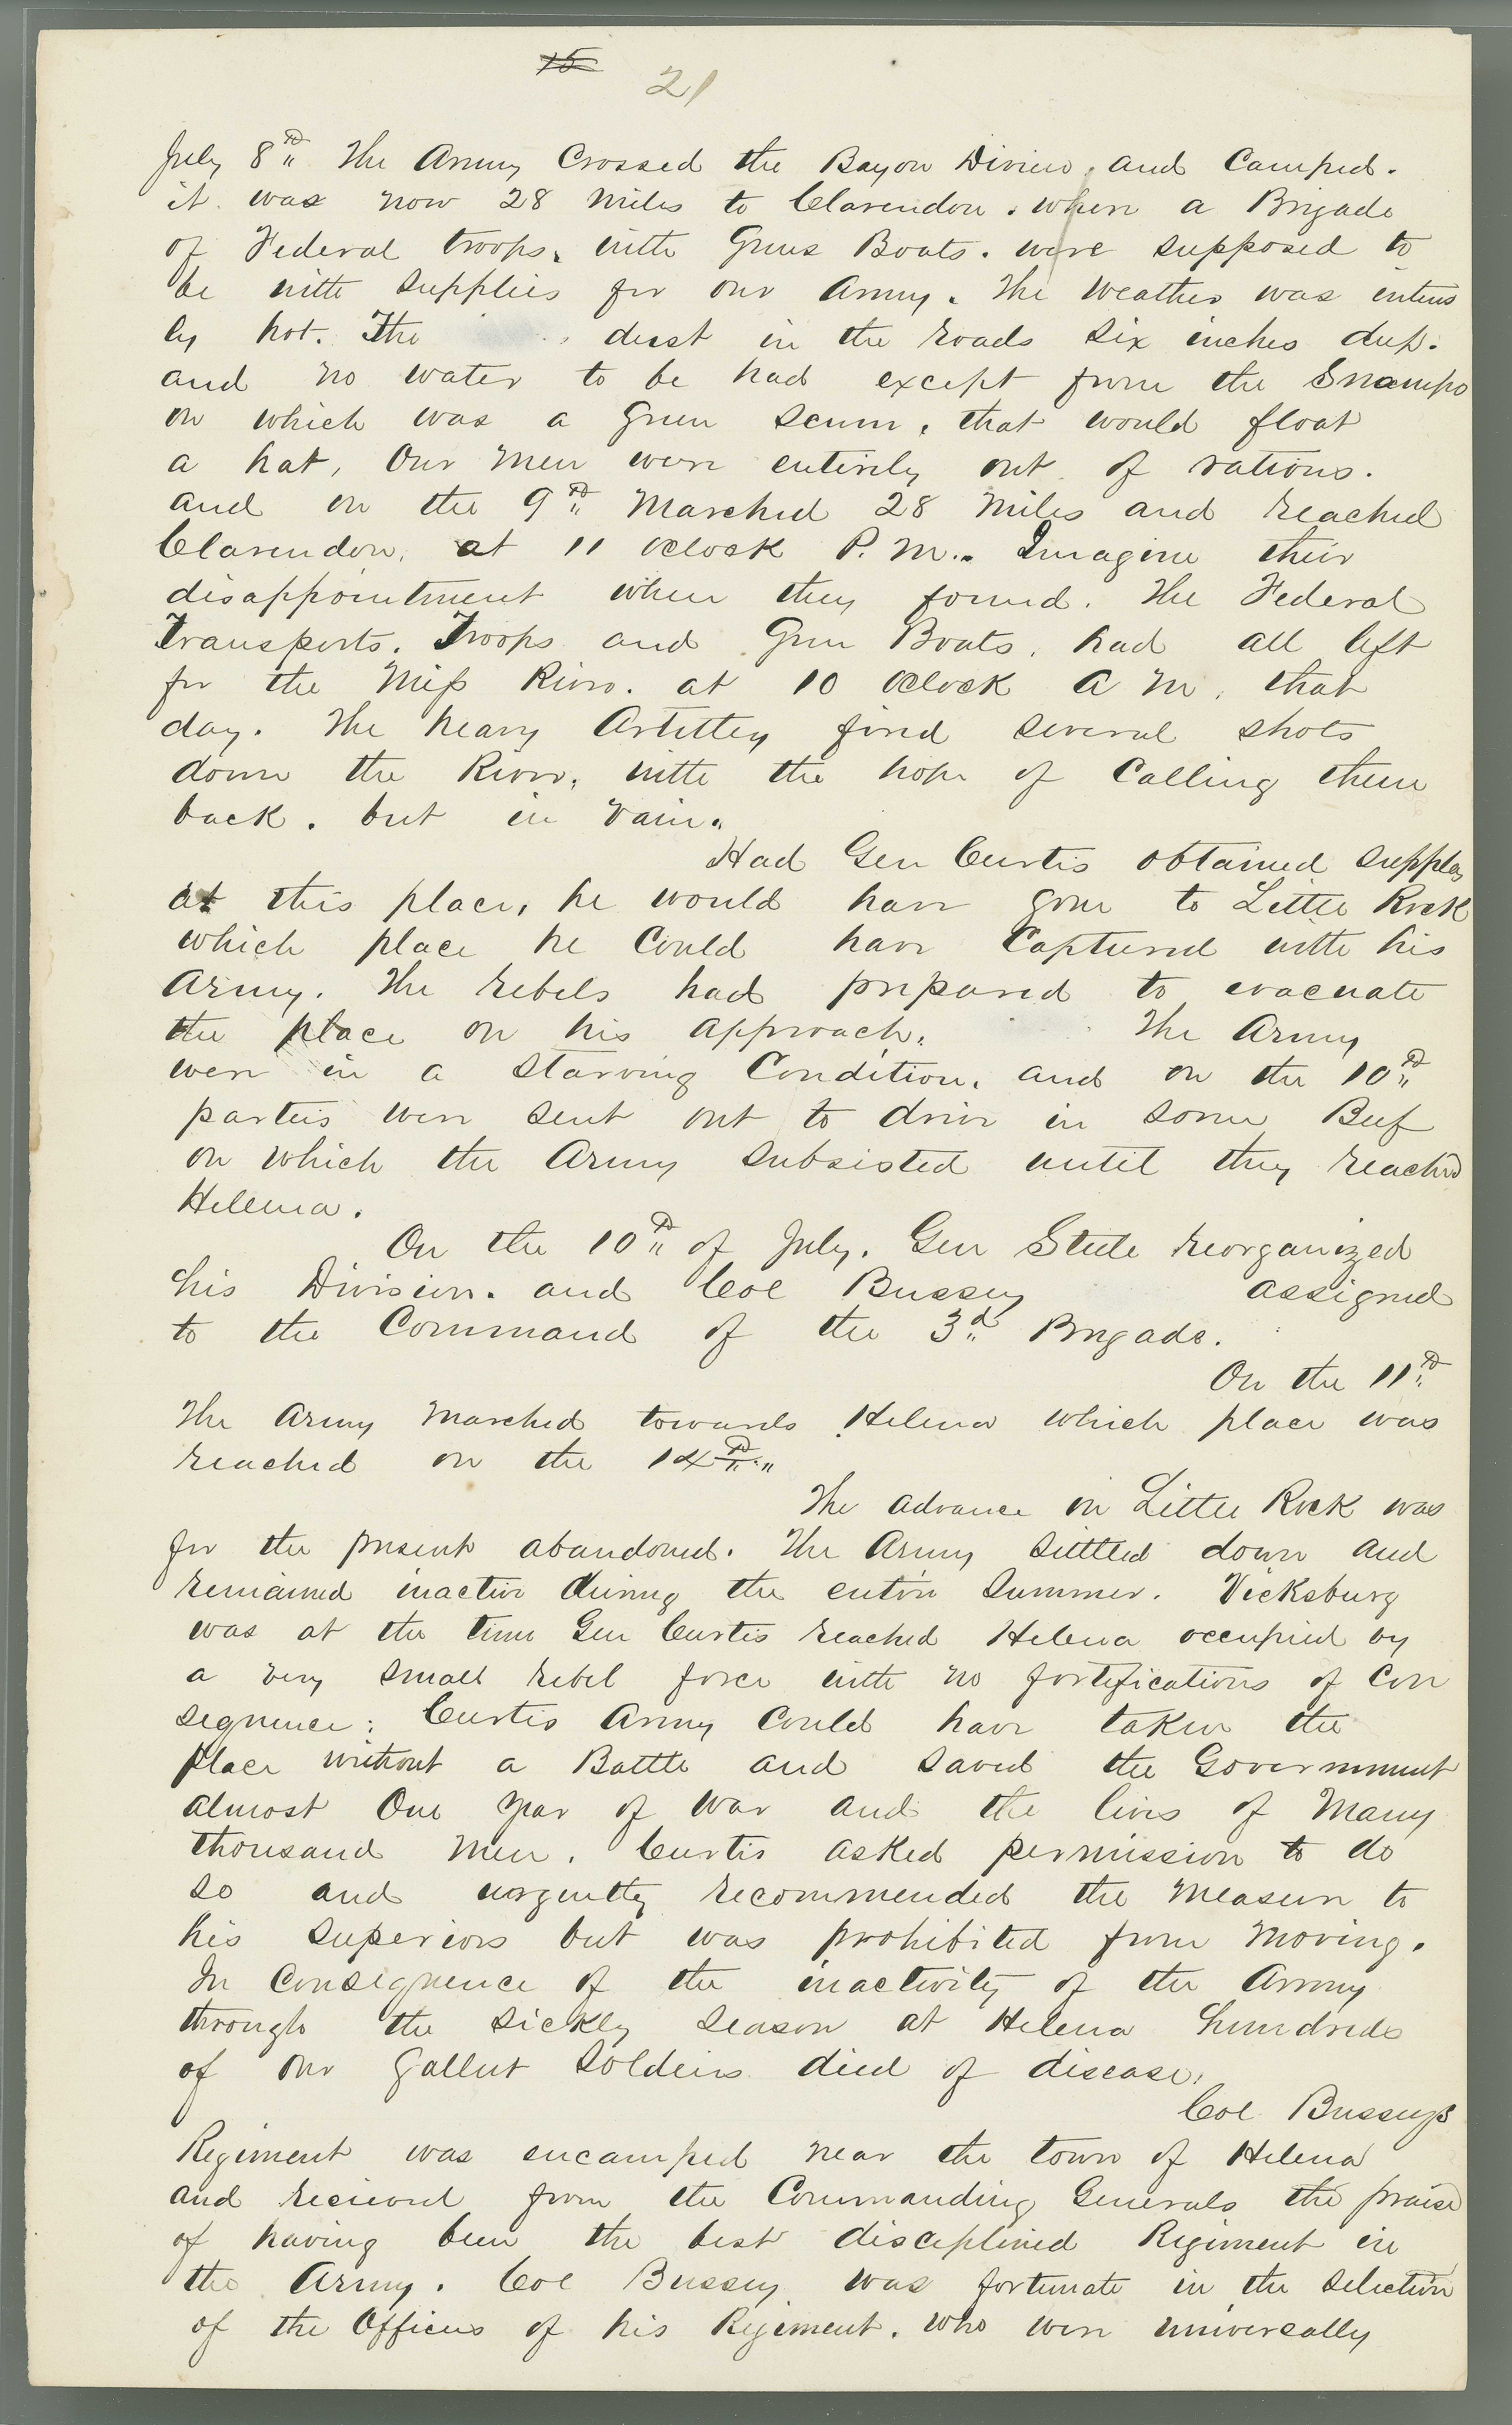 15 21
July 8th The Army Crossed the Bayou Diview, and Camped.
it was now 28 miles to Clarendon. where a Brigade
of Federal troops, with Guns Boats. were supposed to
be with supplies for our Army. The Weather was intens
ly hot. The dust in the roads six inches deep.
and no water to be had except from the Swamps
on which was a green scum, that would float
a hat, Our Men were entirely out of rations.
and on the 9th Marched 28 miles and reached
Clarendon, at 11 oclock P. M.. Imagine their
disappointment when they found. The Federal
Transports. Troops and Gun Boats, had all left
for the Miss River. at 10 oclock A M, that
day. The heavy Artillery fired several shots
down the River, with the hope of Calling them
back. but in vain.
Had Gen Curtis obtained supplies
at this place, he would have gone to Little Rock
which place he Could have Captured with his
Army. The rebels had prepared to evacuate
the place on his approach. The Army
were in a starving Condition, and on the 10th
parties were sent out to drive in some Beef
on which the Army subsisted until they reached
Helena.
On the 10th of July, Gen Steele reorganized
his Division. and Col Bussey assigned
to the Command of the 3d Brigade.
On the 11th
The Army Marched towards Helena which place was
reached on the 14th
The advance on Little Rock was
for the present abandoned. The Army settled down and
remained inactive during the entire Summer. Vicksburg
was at the time Gen Curtis reached Helena occupied by
a very small rebel force with no fortifications of Con
sequence; Curtis Army Could have taken the
place without a Battle and saved the Government
almost One year of war and the lives of Many
thousand Men. Curtis asked permission to do
so and urgently recommended the Measure to
his superiors but was prohibited from Moving.
In Consequence of the inactivity of the Army
through the sickly season at Helena hundreds
of our gallent Soldeirs died of disease,
Col Busseys
Regiment was encamped near the town of Helena
and received from the Commanding Generals the praise
of having been the best disciplined Regiment in
the Army. Col Bussey was fortunate in the selection
of the Officers of his Regiment. who were universally